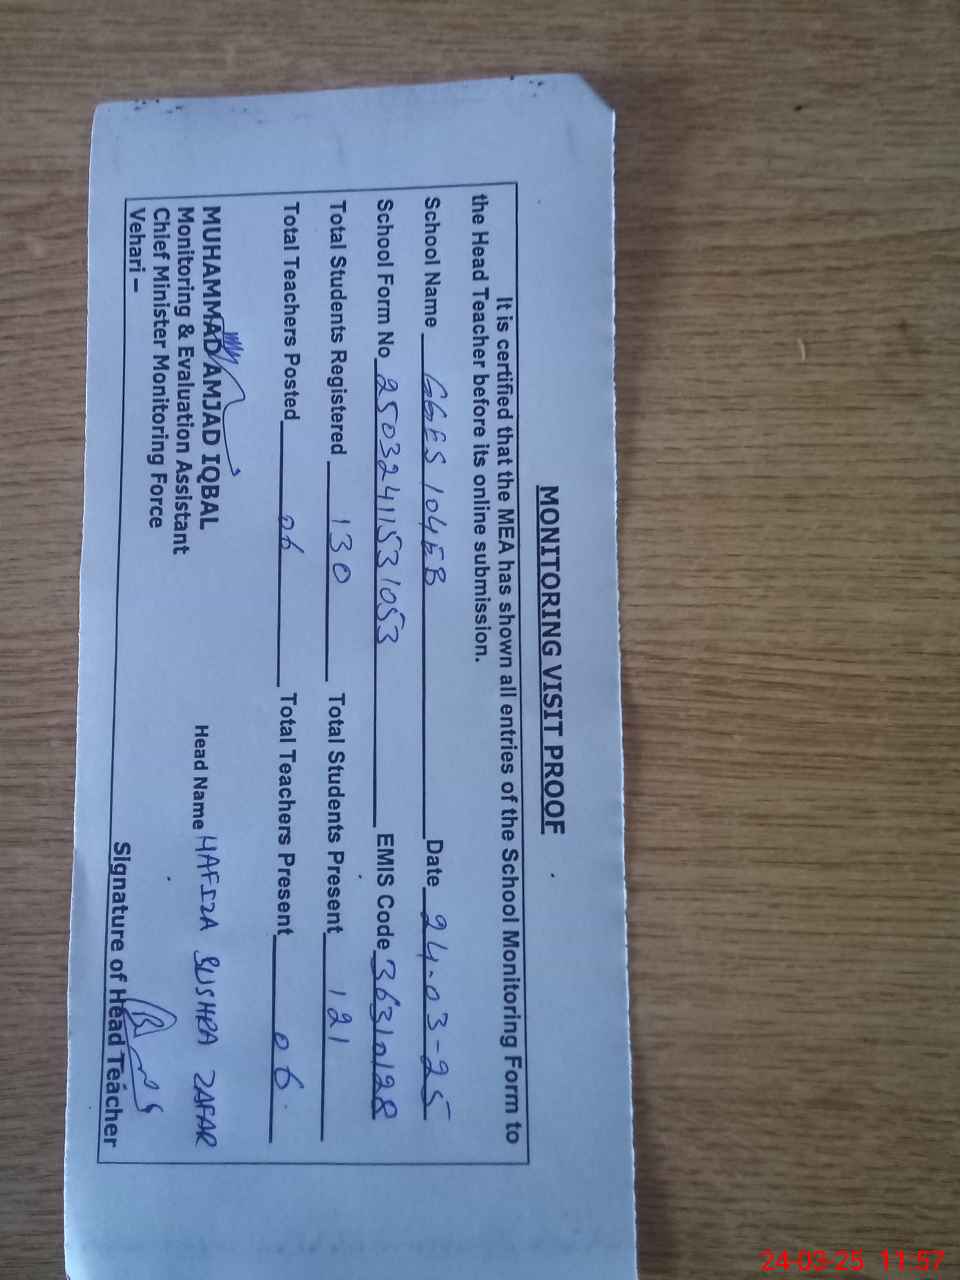 MONITORING VISIT PROOF
It is certified that the MEA has shown all entries of the School Monitoring Form to
the Head Teacher before its online submission.
School Name GGES 104EB Date 24-03-25
School Form No 25032411531053 EMIS Code 36310128
Total Students Registered 130 Total Students Present 121
Total Teachers Posted 06 Total Teachers Present 06
MUHAMMAD AMJAD IQBAL
Monitoring & Evaluation Assistant
Chief Minister Monitoring Force
Vehari –
Head Name HAFIZA BUSHRA ZAFAR
Signature of Head Teacher
24-03-25 11:57